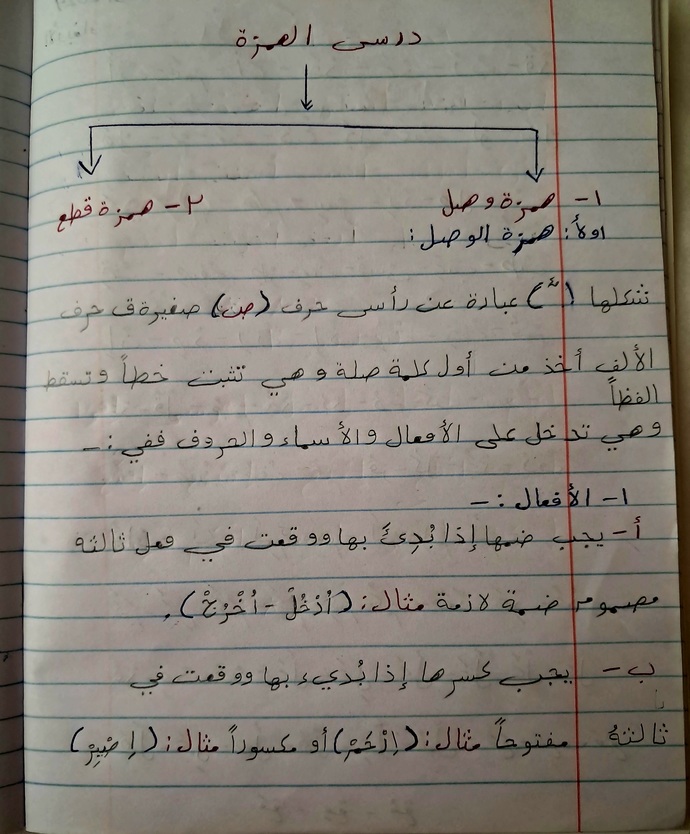 درس الهمزة
١- همزة وصل ٢- همزة قطع
اولاً: همزة الوصل:
شكلها (ٱ) عبادة عن رأس حرف (ص) صغيرة ق حرف
الألف أخذ من أول كلمة صلة وهي تثبت خطاً وتسقط
الفظاً
وهي تدخل على الأفعال والأسماء والحروف ففي:-
١- الأفعال:-
أ- يجب ضمها إذا بُدِئَ بها ووقعت في فعل ثالثه
مضموم ضمة لازمة مثال: (اُدْخُلْ - اُخْرُجْ).
ب- يجب كسرها إذا بُديء بها ووقعت في
ثالثهُ مفتوحاً مثال: (اِرْحَمْ) أو مكسوراً مثال: (اِصْبِرْ)